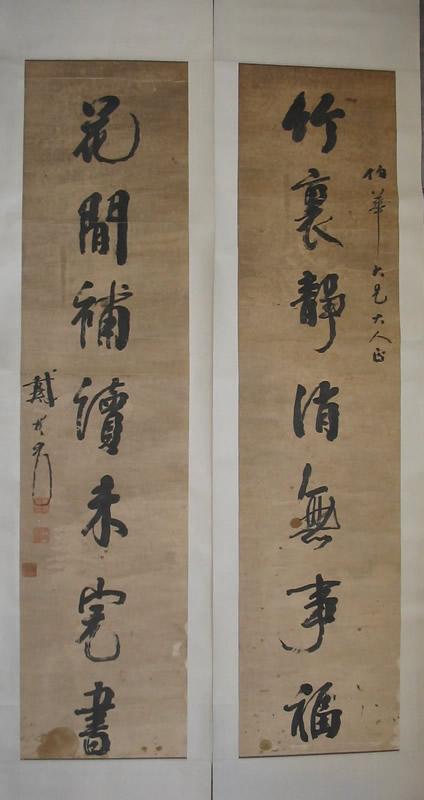 伯華大兄大人正
竹裏靜消無事福
花間補讀未完書
戴